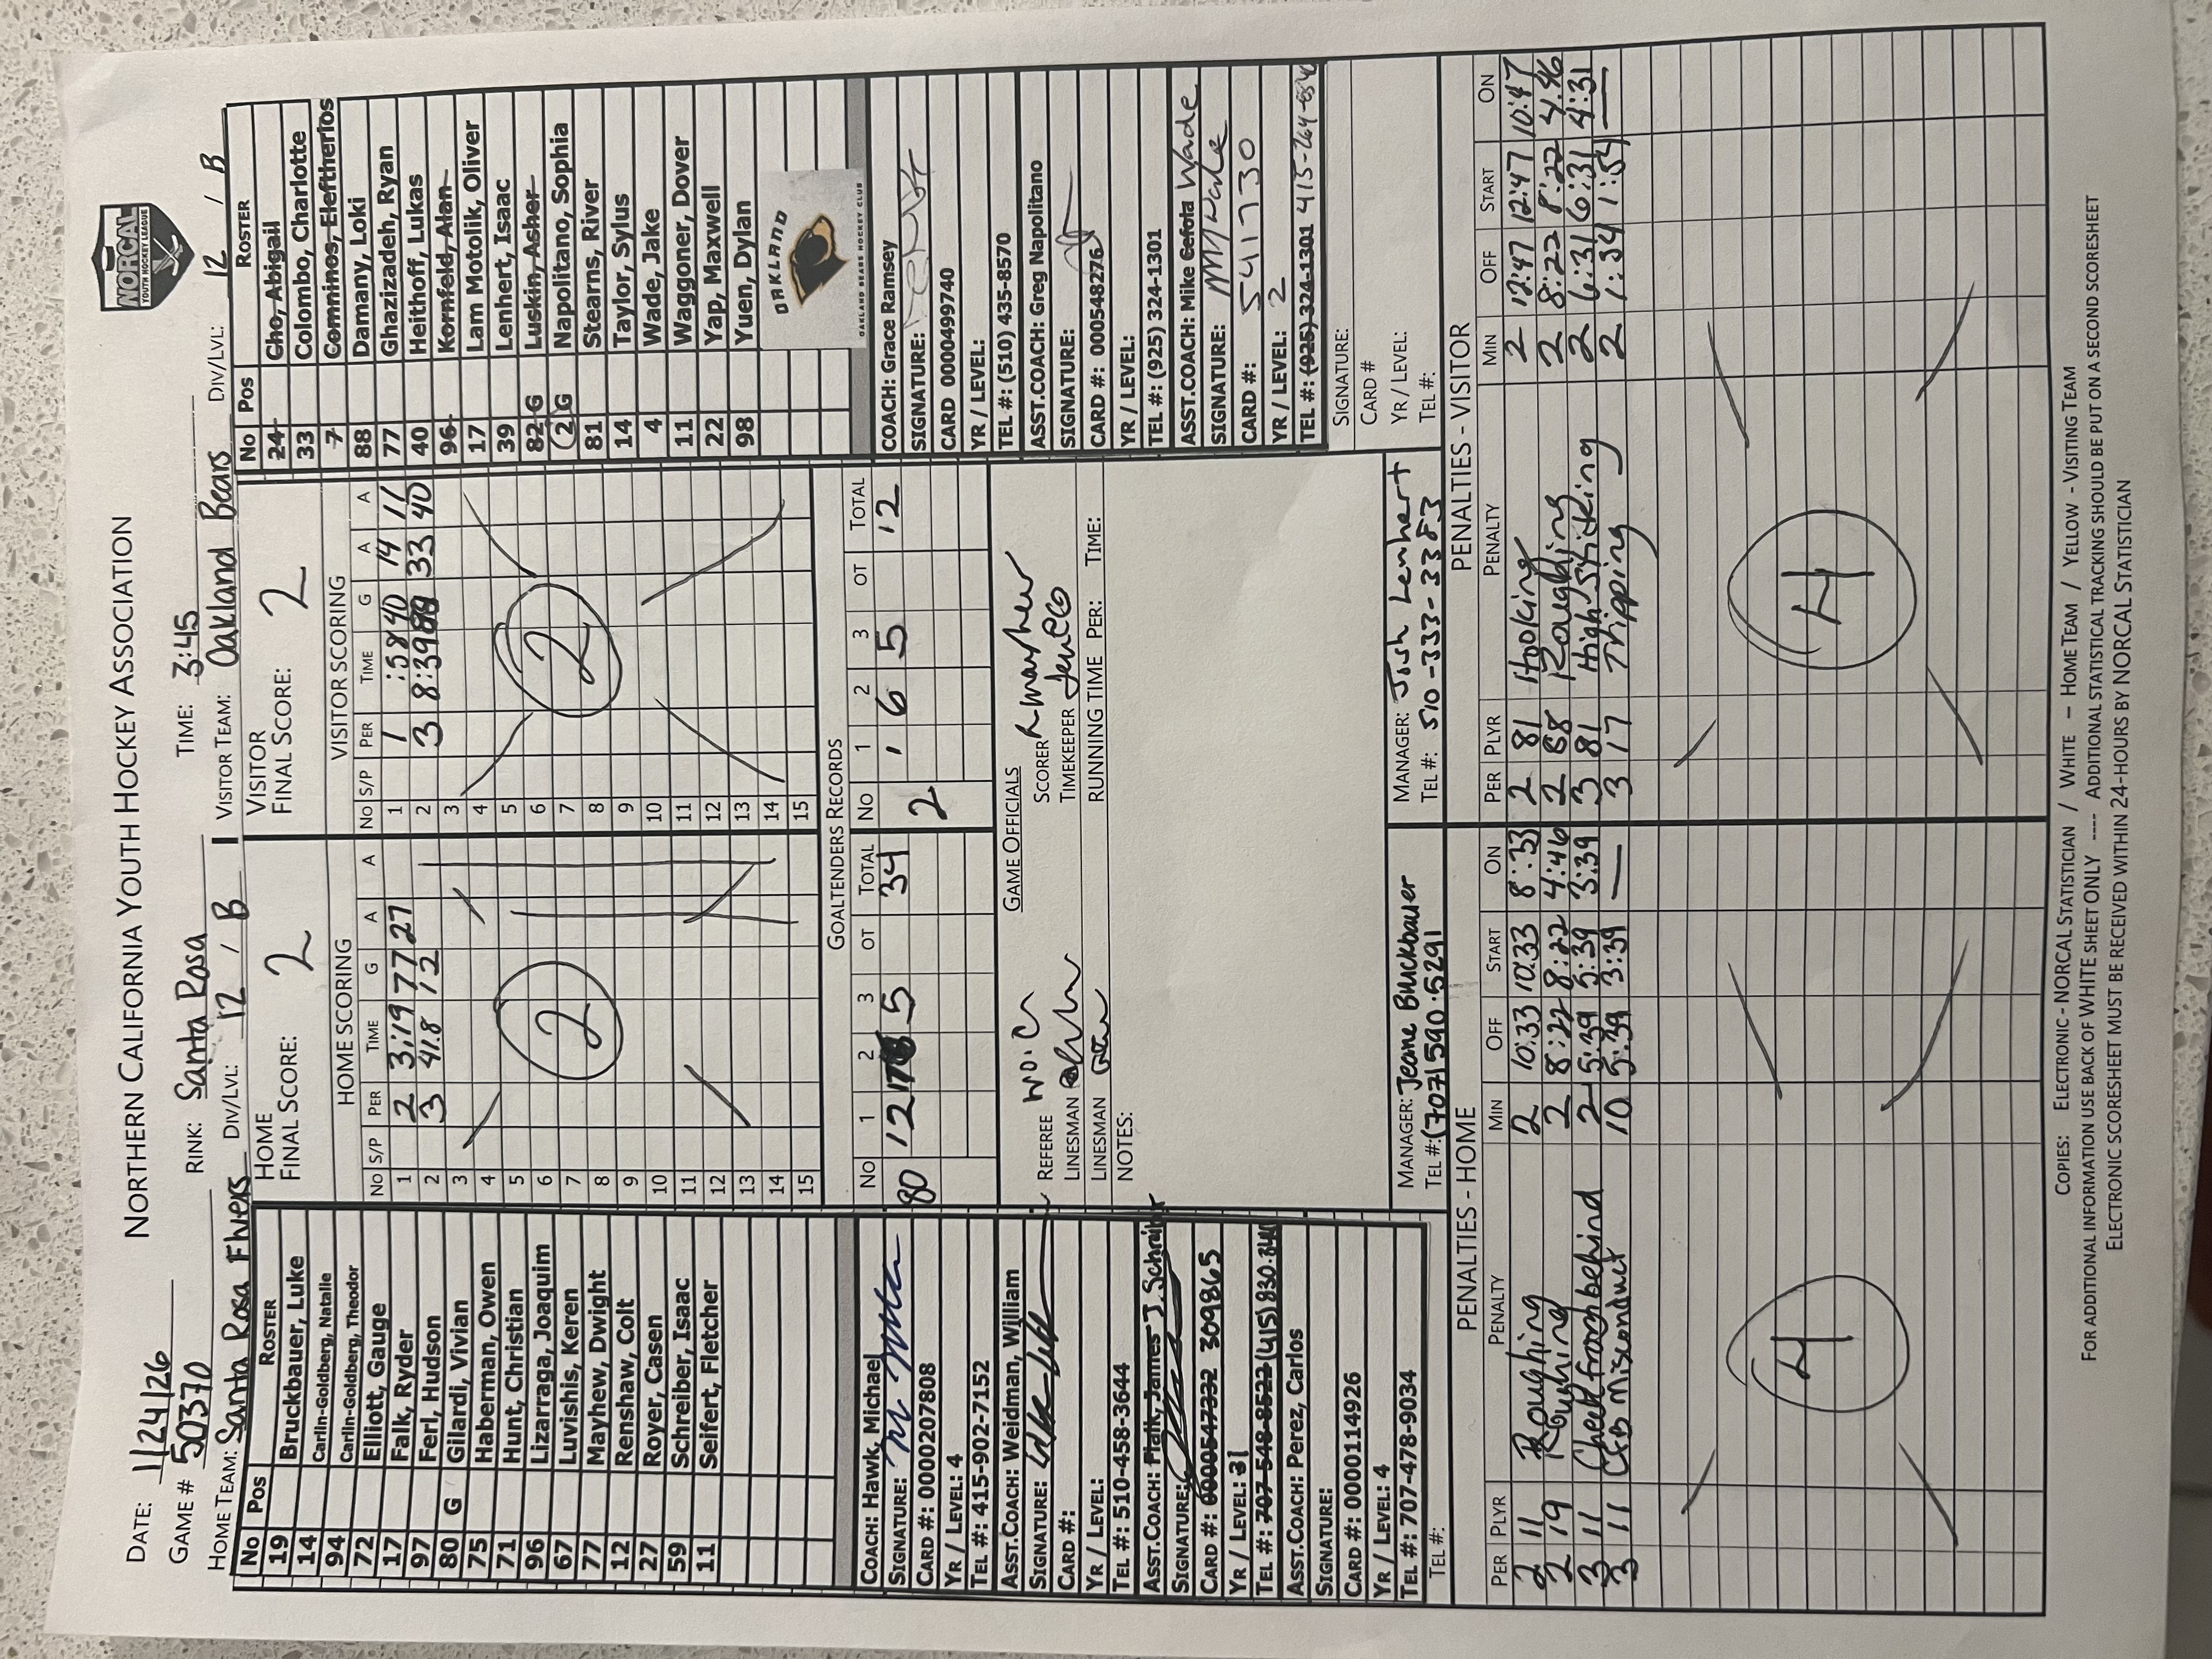 NORTHERN CALIFORNIA YOUTH HOCKEY ASSOCIATION
NORCAL
YOUTH HOCKEY LEAGUE
DATE: 1/24/26
GAME # 50370 RINK: Santa Rosa TIME: 3:45
HOME TEAM: Santa Rosa Flyers DIV/LVL: 12 / B VISITOR TEAM: Oakland Bears DIV/LVL: 12 / B
No Pos ROSTER
19 Bruckbauer, Luke
14 Carlin-Goldberg, Natalie
94 Carlin-Goldberg, Theodor
72 Elliott, Gauge
17 Falk, Ryder
97 Ferl, Hudson
80 G Gilardi, Vivian
75 Haberman, Owen
71 Hunt, Christian
96 Lizarraga, Joaquim
67 Luvishis, Keren
77 Mayhew, Dwight
12 Renshaw, Colt
27 Royer, Casen
59 Schreiber, Isaac
11 Seifert, Fletcher
HOME
FINAL SCORE: 2
HOME SCORING
No S/P PER TIME G A A
1 2 3:19 77 27
2 3 41.8 12
3
4
5
6
7
8
9
10
11
12
13
14
15
2
VISITOR
FINAL SCORE: 2
VISITOR SCORING
No S/P PER TIME G A A
1 1 :58 40 14 11
2 3 8:39 33 40
3
4
5
6
7
8
9
10
11
12
13
14
15
2
No Pos ROSTER
24 Cho, Abigail
33 Colombo, Charlotte
7 Comninos, Eleftherios
88 Damany, Loki
77 Ghazizadeh, Ryan
40 Heithoff, Lukas
96 Kornfeld, Alan
17 Lam Motolik, Oliver
39 Lenhert, Isaac
82 G Luskin, Asher
2 G Napolitano, Sophia
81 Stearns, River
14 Taylor, Sylus
4 Wade, Jake
11 Waggoner, Dover
22 Yap, Maxwell
98 Yuen, Dylan
OAKLAND
OAKLAND BEARS HOCKEY CLUB
GOALTENDERS RECORDS
No 1 2 3 OT TOTAL No 1 2 3 OT TOTAL
80 12 17 5 34 2 1 6 5 12
COACH: Hawk, Michael
SIGNATURE:
CARD #: 0000207808
YR / LEVEL: 4
TEL #: 415-902-7152
ASST.COACH: Weidman, William
SIGNATURE:
CARD #:
YR / LEVEL:
TEL #: 510-458-3644
ASST.COACH: Platk, James J. Schreiber
SIGNATURE:
CARD #: 0000547332 309865
YR / LEVEL: 31
TEL #: 707-548-8522 (415) 830
ASST.COACH: Perez, Carlos
SIGNATURE:
CARD #: 0000114926
YR / LEVEL: 4
TEL #: 707-478-9034
TEL #:
GAME OFFICIALS
REFEREE SCORER R Mayhew
LINESMAN TIMEKEEPER
LINESMAN RUNNING TIME PER: TIME:
NOTES:
MANAGER: Jeane Buckbauer
TEL #: (707) 590.5291
MANAGER: Josh Lenhert
TEL #: 510-333-3383
COACH: Grace Ramsey
SIGNATURE:
CARD 0000499740
YR / LEVEL:
TEL #: (510) 435-8570
ASST.COACH: Greg Napolitano
SIGNATURE:
CARD #: 0000548276
YR / LEVEL:
TEL #: (925) 324-1301
ASST.COACH: Mike Cefota Wade
SIGNATURE: M Wade
CARD #: 541730
YR / LEVEL: 2
TEL #: (925) 324-1301 415-264
SIGNATURE:
CARD #
YR / LEVEL:
TEL #:
PENALTIES - HOME
PER PLYR PENALTY MIN OFF START ON
2 11 Roughing 2 10:33 10:33 8:33
2 19 Roughing 2 8:22 8:22 4:46
3 11 Check from behind 2 5:39 5:39 3:39
3 11 CFB Misconduct 10 5:39 3:39 —
4
PENALTIES - VISITOR
PER PLYR PENALTY MIN OFF START ON
2 81 Hooking 2 12:47 12:47 10:47
2 88 Roughing 2 8:22 8:22 4:46
3 81 High Sticking 2 6:31 6:31 4:31
3 17 Tripping 2 1:34 1:34 —
4
COPIES: ELECTRONIC - NORCAL STATISTICIAN / WHITE – HOME TEAM / YELLOW - VISITING TEAM
FOR ADDITIONAL INFORMATION USE BACK OF WHITE SHEET ONLY ---- ADDITIONAL STATISTICAL TRACKING SHOULD BE PUT ON A SECOND SCORESHEET
ELECTRONIC SCORESHEET MUST BE RECEIVED WITHIN 24-HOURS BY NORCAL STATISTICIAN